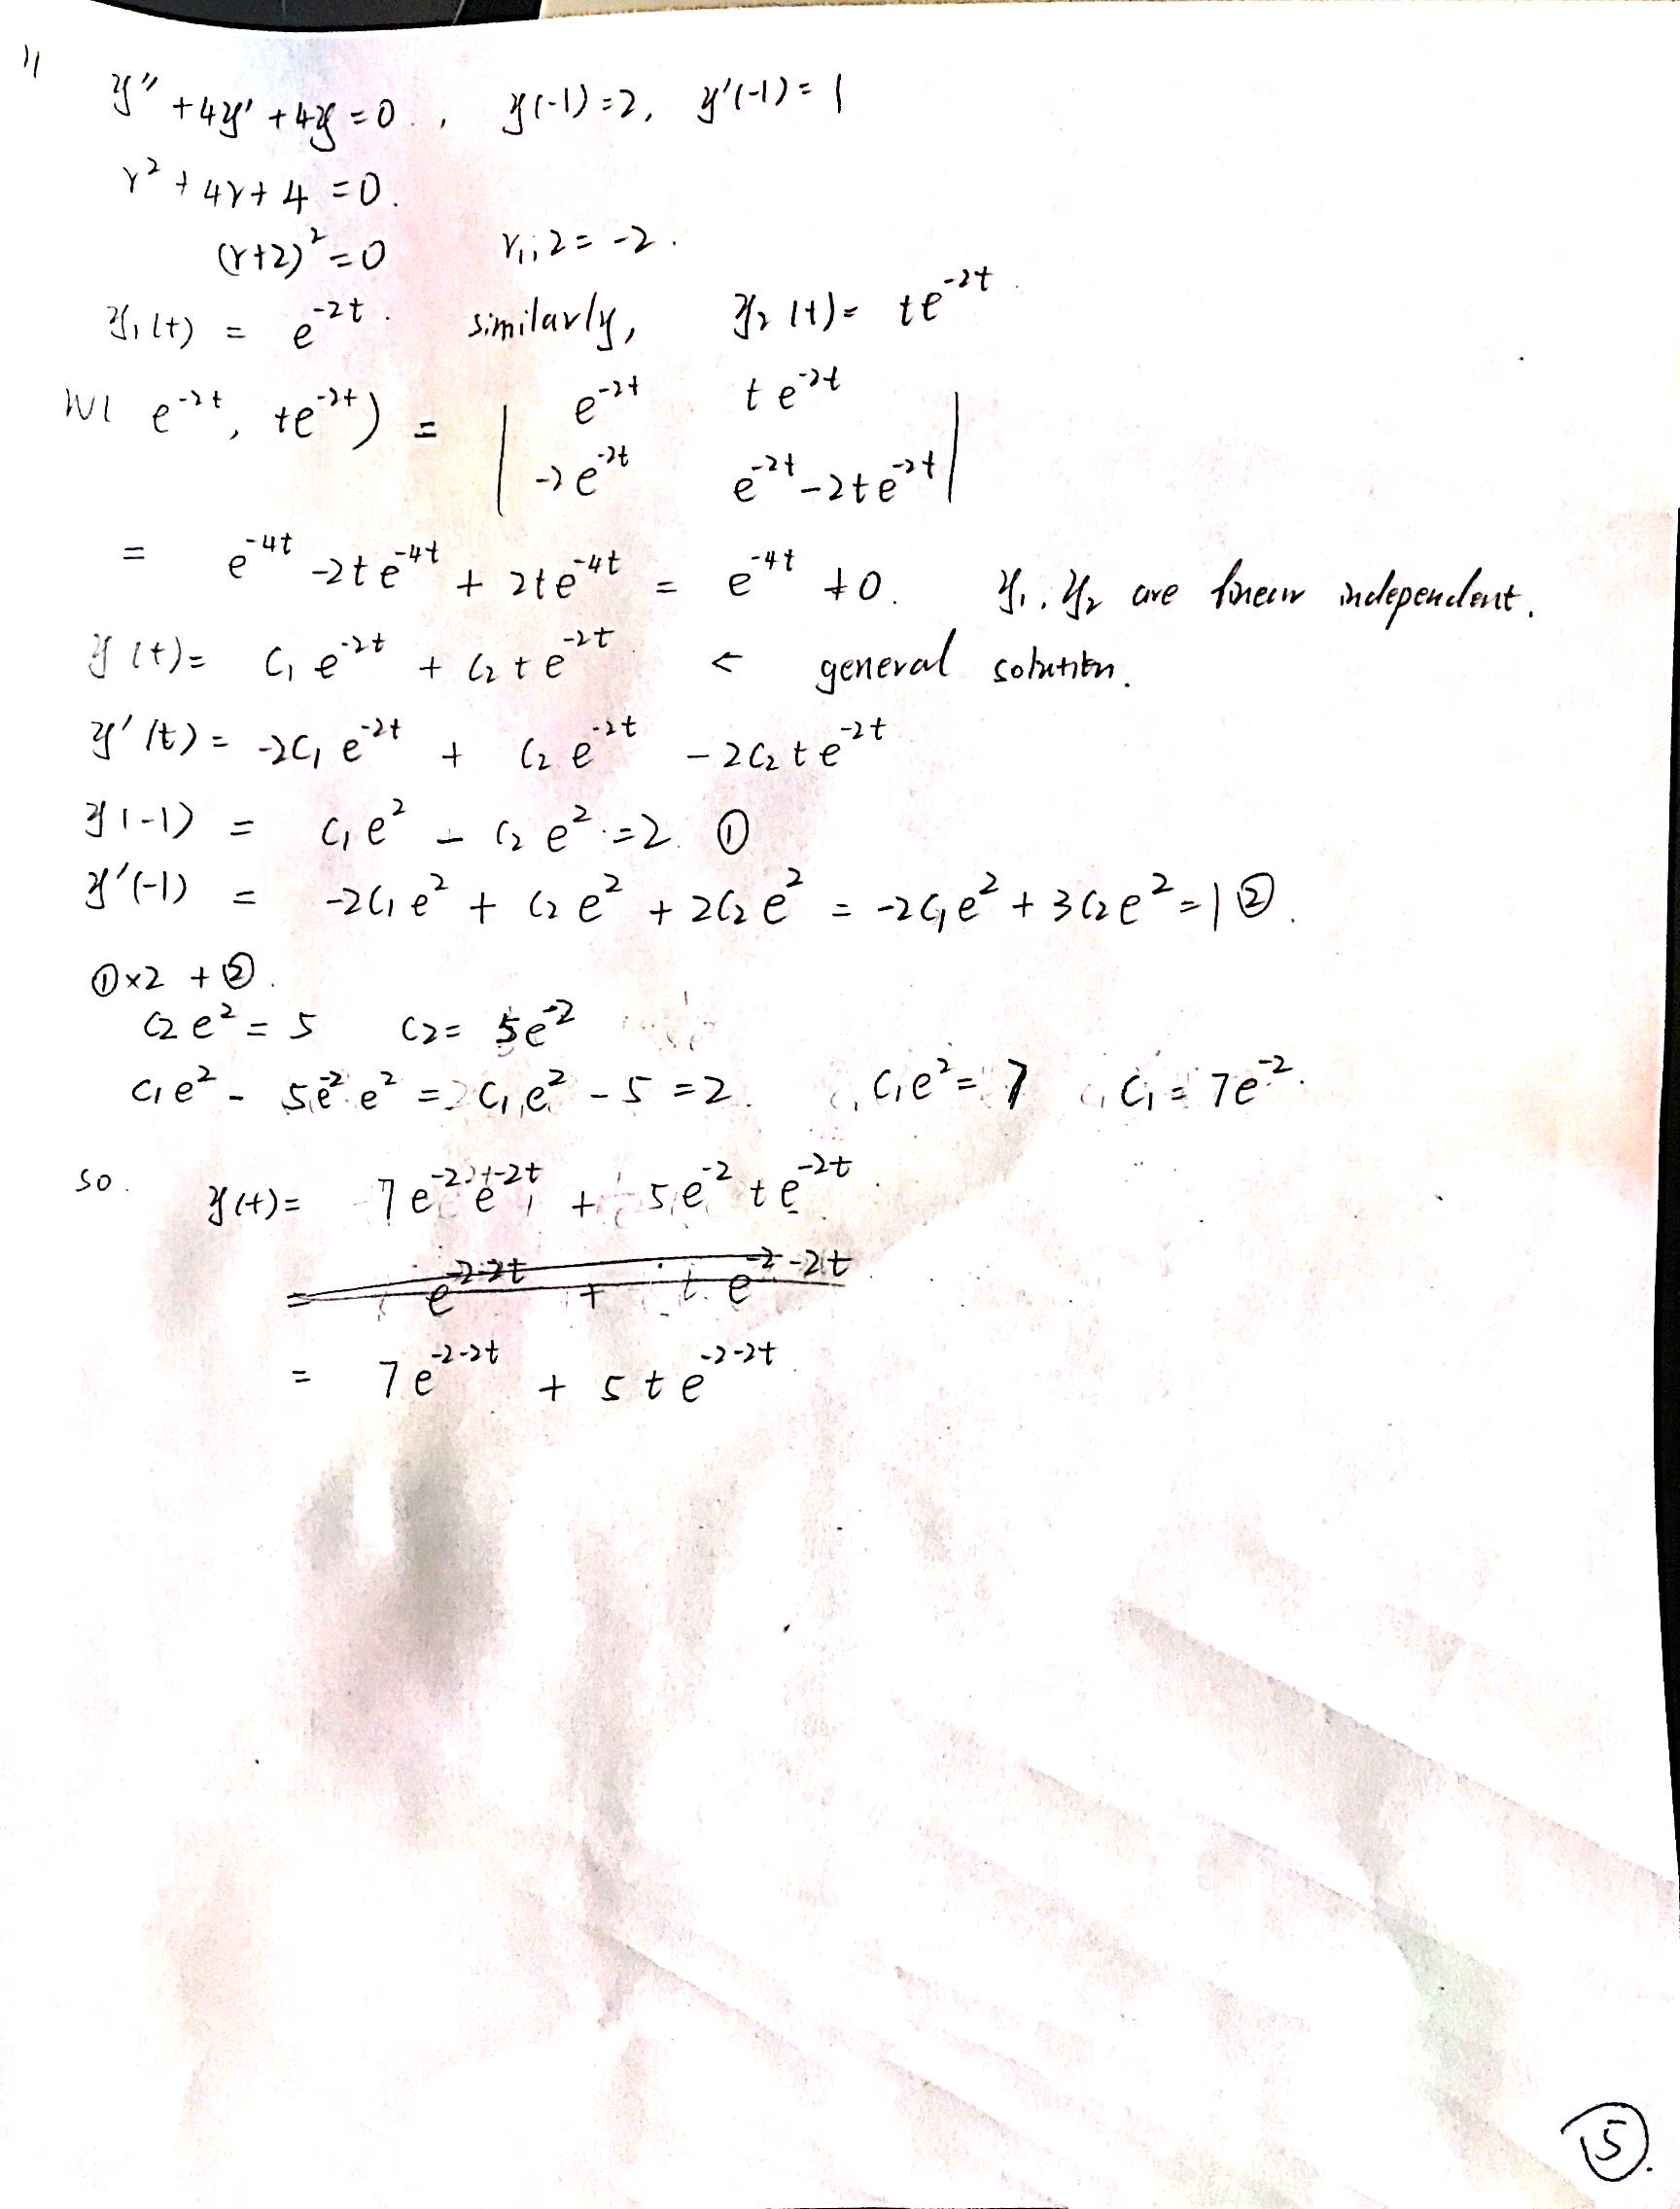 11
y'' + 4y' + 4y = 0 , y(-1) = 2, y'(-1) = 1
r² + 4r + 4 = 0.
(r+2)² = 0 r₁,₂ = -2.
y₁(t) = e^{-2t}. similarly, y₂(t) = te^{-2t}.
W( e^{-2t}, te^{-2t}) = | e^{-2t} te^{-2t}
-2e^{-2t} e^{-2t} - 2te^{-2t} |
= e^{-4t} - 2te^{-4t} + 2te^{-4t} = e^{-4t} ≠ 0. y₁, y₂ are linear independent.
y(t) = C₁e^{-2t} + C₂te^{-2t} ← general solution.
y'(t) = -2C₁e^{-2t} + C₂e^{-2t} - 2C₂te^{-2t}
y(-1) = C₁e² - C₂e² = 2. ①
y'(-1) = -2C₁e² + C₂e² + 2C₂e² = -2C₁e² + 3C₂e² = 1 ②.
① x2 + ②.
C₂e² = 5 C₂ = 5e^{-2}
C₁e² - 5e^{-2}e² = C₁e² - 5 = 2. C₁e² = 7 C₁ = 7e^{-2}.
so. y(t) = 7e^{-2}e^{-2t} + 5e^{-2}te^{-2t}.
= e^{-2-2t} + te^{-2-2t}
= 7e^{-2-2t} + 5te^{-2-2t}.
⑤.